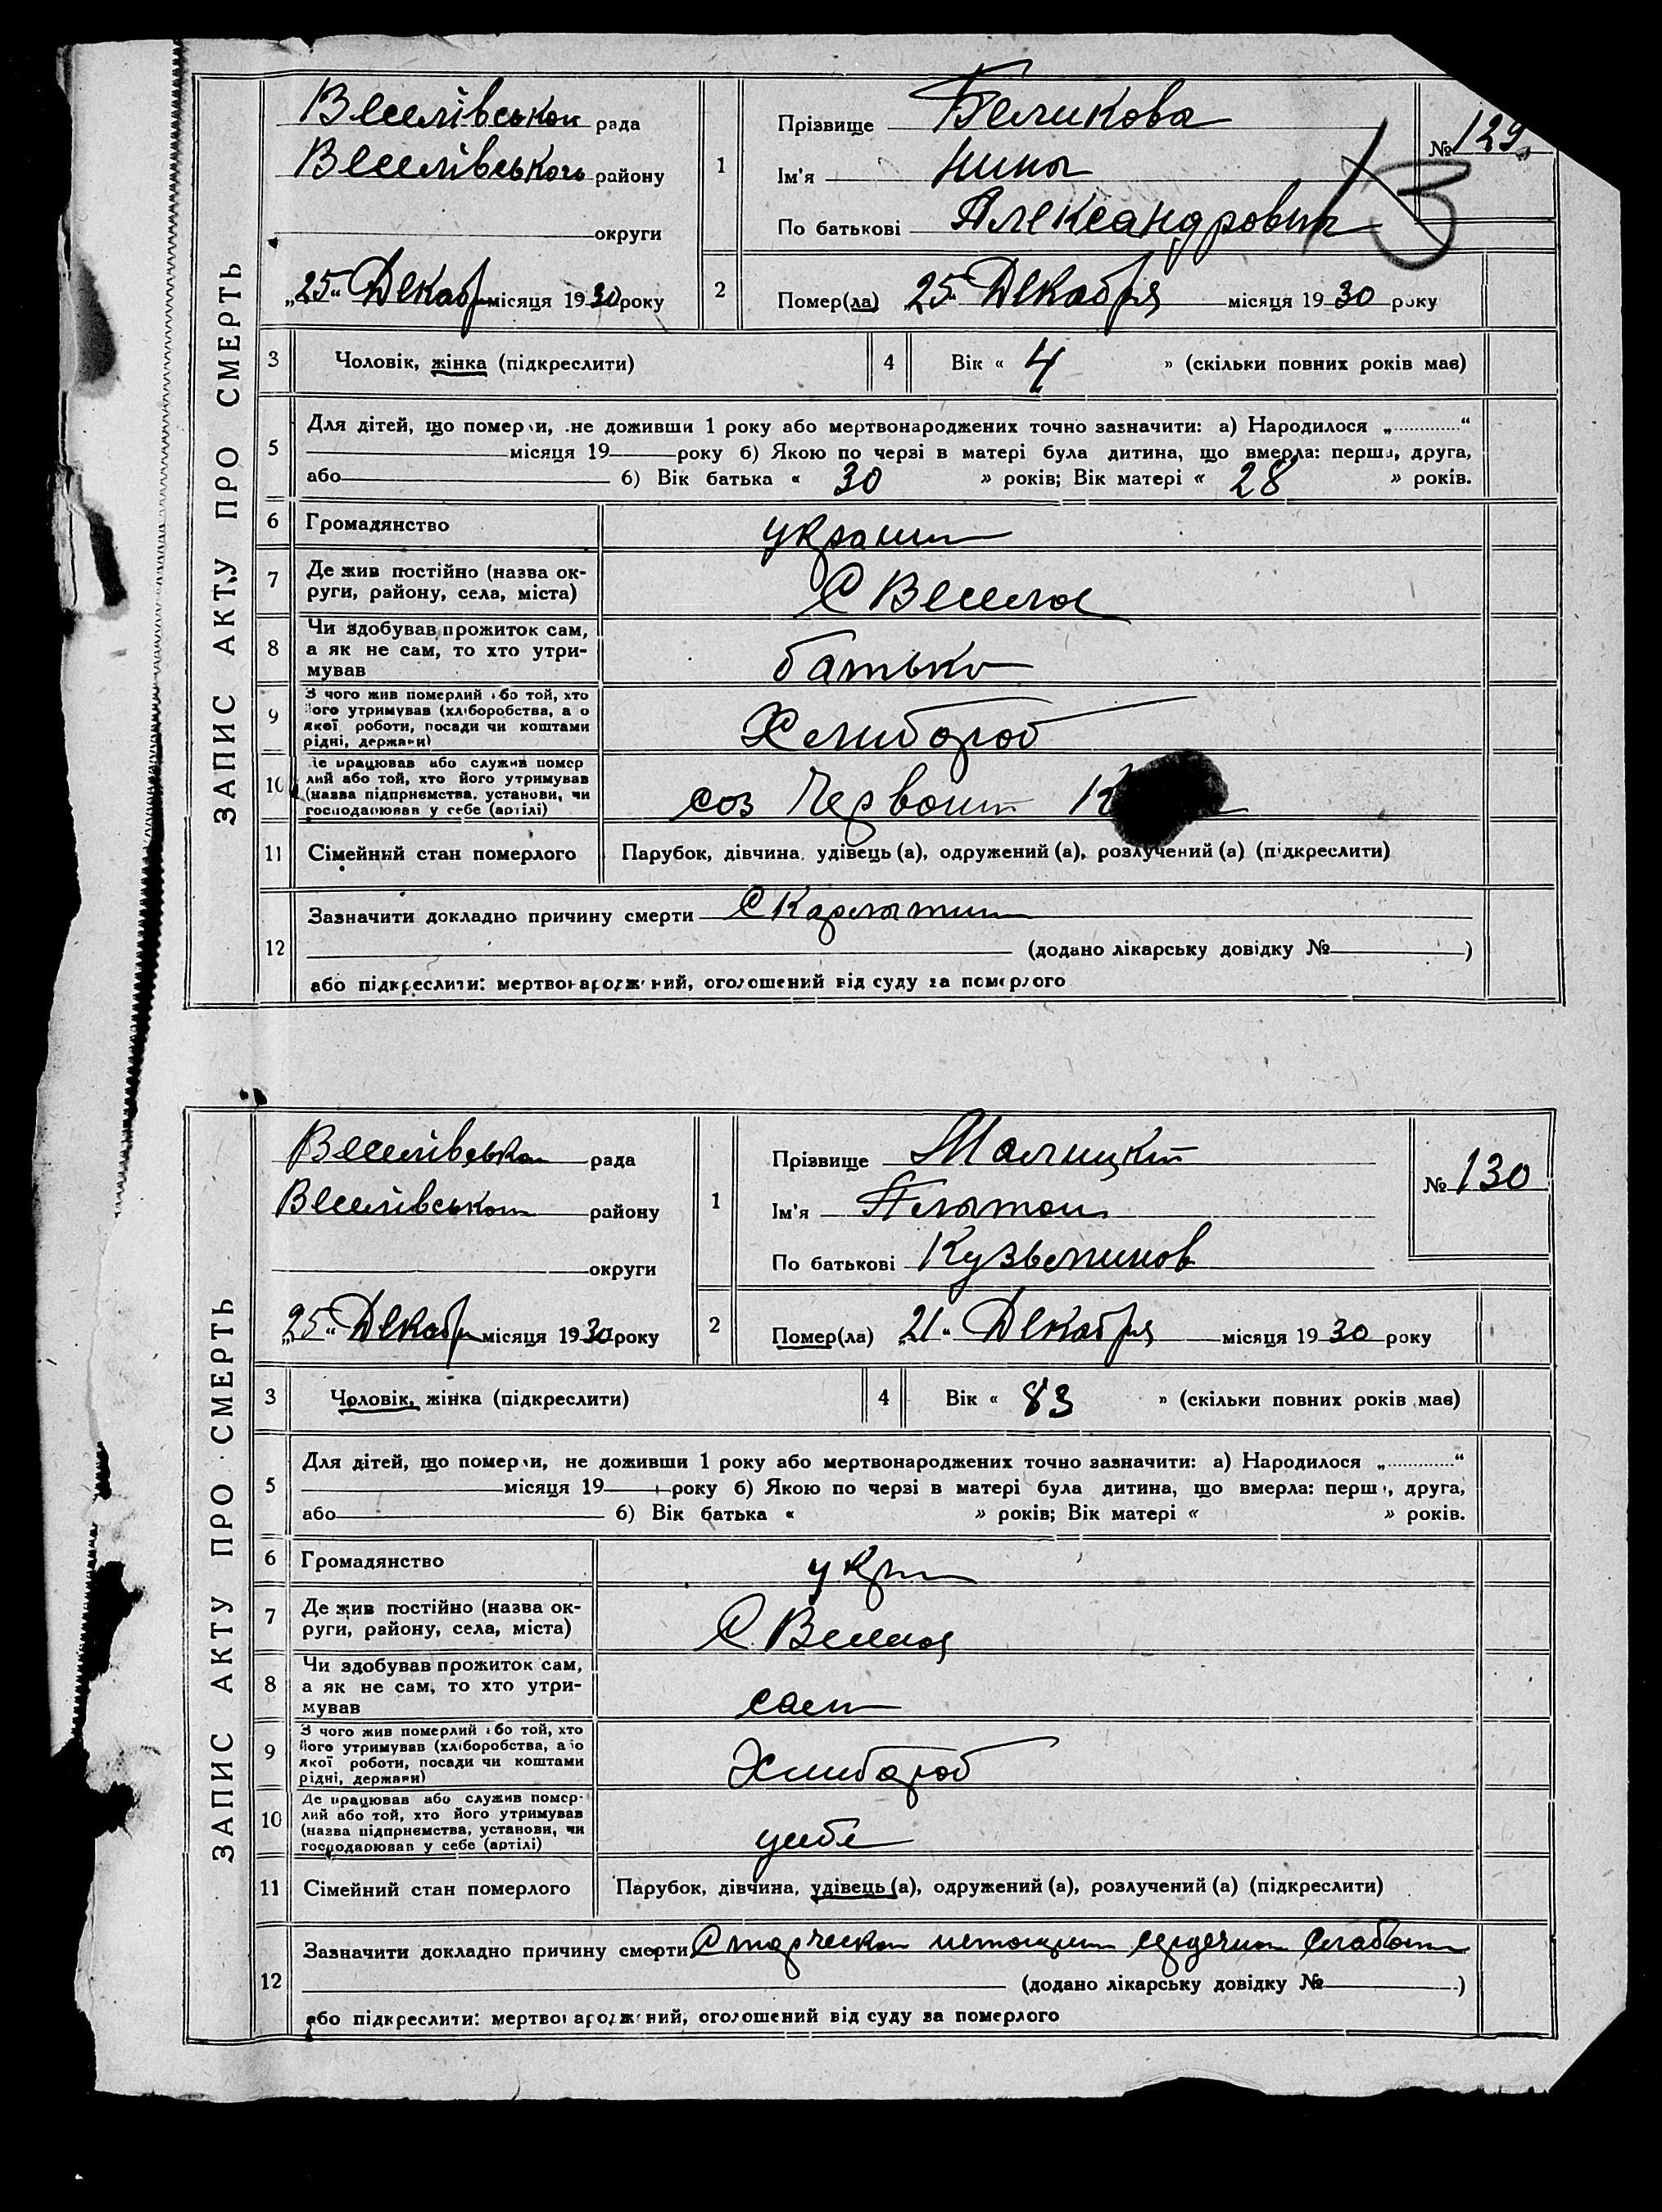 ЗАПИС АКТУ ПРО СМЕРТЬ
Веселівськои рада
Веселівського району
округи
„25“ Декабр місяця 1930 року
1
Прізвище Беликова
Ім'я Нина
По батькові Александровна
№ 129
13
2
Помер(ла) „25“ Декабря місяця 1930 року
3 Чоловік, жінка (підкреслити)
4 Вік « 4 » (скільки повних років має)
5 Для дітей, що померли, не доживши 1 року або мертвонароджених точно зазначити: а) Народилося „............“
місяця 19 року б) Якою по черзі в матері була дитина, що вмерла: перша, друга,
або б) Вік батька « 30 » років; Вік матері « 28 » років.
6 Громадянство украин
7 Де жив постійно (назва ок-
руги, району, села, міста) С Весела
8 Чи здобував прожиток сам,
а як не сам, то хто утри-
мував батько
9 З чого жив померлий або той, хто
його утримував (хліборобства, або
якої роботи, посади чи коштами
рідні, держави) Хлибороб
10 Де працював або служив помер
лий або той, хто його утримував
(назва підприємства, установи, чи
господарював у себе (артілі) соз Червони К
11 Сімейний стан померлого Парубок, дівчина, удівець (а), одружений (а), розлучений (а) (підкреслити)
12 Зазначити докладно причину смерти Скарлатин
(додано лікарську довідку № )
або підкреслити: мертвонароджений, оголошений від суду за померлого
ЗАПИС АКТУ ПРО СМЕРТЬ
Веселівська рада
Веселівського району
округи
„25“ Декабр місяця 1930 року
1
Прізвище Малицкий
Ім'я Платон
По батькові Кузьминов
№ 130
2
Помер(ла) „21“ Декабря місяця 1930 року
3 Чоловік, жінка (підкреслити)
4 Вік « 83 » (скільки повних років має)
5 Для дітей, що померли, не доживши 1 року або мертвонароджених точно зазначити: а) Народилося „............“
місяця 19 року б) Якою по черзі в матері була дитина, що вмерла: перша, друга,
або б) Вік батька « » років; Вік матері « » років.
6 Громадянство укр
7 Де жив постійно (назва ок-
руги, району, села, міста) С. Весела
8 Чи здобував прожиток сам,
а як не сам, то хто утри-
мував сам
9 З чого жив померлий або той, хто
його утримував (хліборобства, або
якої роботи, посади чи коштами
рідні, держави) Хлибороб
10 Де працював або служив помер-
лий або той, хто його утримував
(назва підприємства, установи, чи
господарював у себе (артілі) у себе
11 Сімейний стан померлого Парубок, дівчина, удівець (а), одружений (а), розлучений (а) (підкреслити)
12 Зазначити докладно причину смерти Старческое истощение сердечная слабость
(додано лікарську довідку № )
або підкреслити: мертвонароджений, оголошений від суду за померлого